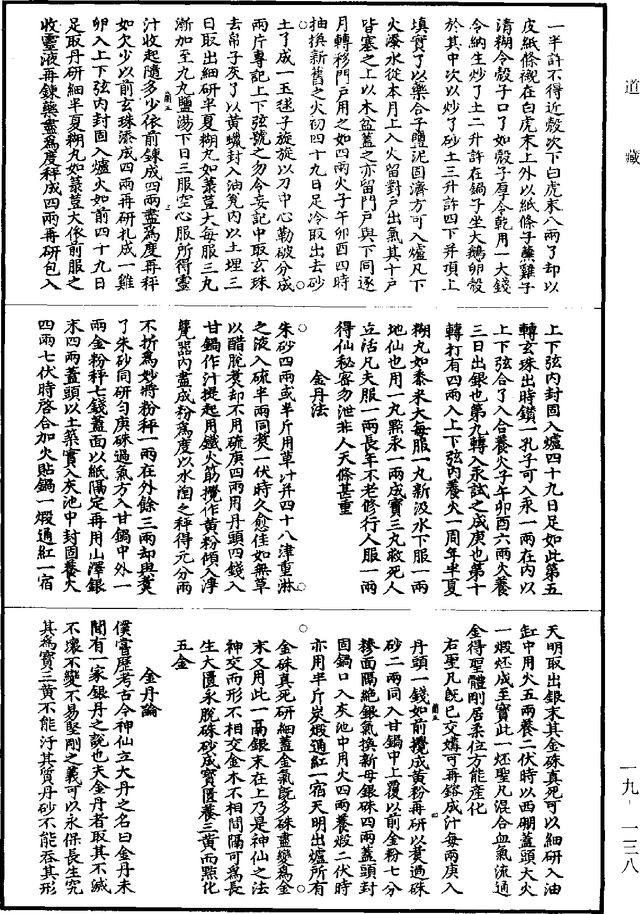 道藏
一半許不得近殼次下白虎末八兩了却以
皮紙條襯在白虎末上外以紙條子蘸雞子
清糊令殼子口了如殼子厚令乾用一大錢
令納生炒了土二升許在鍋子坐大鵝卵殼
於其中次以炒了砂土三升許四下并頂上
填實了以藥合子鹽泥固濟方可入爐凡下
火潑水從本月上入火留對戶出氣其十戶
皆塞之上以木盆蓋之亦留門戶與下同逐
月轉移門戶用之如四兩火子午卯酉四時
抽換新舊之火切四十九日足冷取出去砂
土了成一玉毬子旋旋以刀中心勒破分成
兩片專記上下弦號之勿令妄記中取玄珠
去帛子灰了以黃蠟封入油甆內以土埋三
日取出細研半夏糊丸如菉荳大每服三九
漸加至九九鹽湯下日三服空心服所得靈
汁收起隨多少依前鍊成四兩盡爲度再秤
如欠少以前玄珠添成四兩再研扎成一雞
卵入上下弦內封固入爐火如前四十九日
足取丹研細半夏糊丸如菉荳大依前服之
收靈液再鍊藥盡爲度秤成四兩再研包入
上下弦內封固入爐四十九日足如此第五
轉玄珠出時鑽一孔子可入汞一兩在內以
上下弦合了入合養火子午卯酉六兩火養
三日出銀也第九轉入汞試之成庚也第十
轉打有四兩入上下弦內養火一周年半夏
糊丸如黍米大每服一丸新汲水下服一兩
地仙也用一丸點汞一兩成寶三丸救死人
立活凡夫服一兩長年不老修行人服一兩
得仙秘密勿泄非人天條甚重
金丹法
朱砂四兩或半斤用草汁并四十八津重淋
之液入硫半兩同煑一伏時久愈佳如無草
以醋脫煑却不用硫庚四兩用丹頭四錢入
甘鍋作汁提起用鐵火筯攪作黃粉傾入淨
甆器內盡成粉爲度以水淘之秤得元分兩
不折爲妙將粉秤一兩在外餘三兩却與煑
了朱砂同研勻庚硃過氣方入甘鍋中外一
兩金粉秤七錢蓋面以紙隔定再用山澤銀
末四兩蓋頭以土築實入灰池中封固養火
四兩七伏時啓合加火貼鍋一煅通紅一宿
天明取出銀末其金硃真死可以細研入油
缸中用火五兩養二伏時以西硼蓋頭大火
一煅炁成至寶此一炁聖凡混合血氣流通
金得聖體剛居柔位方能產化
右聖凡既已交媾可再鎔成汁每兩庚入
丹頭一錢如前攪成黃粉再研以煑過硃
砂二兩同入甘鍋中上覆以前金粉七分
摻面隔絶銀氣換新母銀硃四兩蓋頭封
固鍋口入灰池中用火四兩養煅二伏時
亦用半斤炭煅通紅一宿天明出爐所有
金硃真死研細蓋金氣旣多硃盡變爲金
末又用此一鬲銀末在上乃是神仙之法
神交而形不相交金木不相間隔可爲長
生大匱永脫硃砂成寶匱養三黃而點化
五金
金丹論
僕嘗歷考古今神仙立大丹之名曰金丹未
聞有一家銀丹之說也夫金丹者取其不滅
不壞不變不易堅剛之義可以永保長生究
其爲寶三黃不能汙其質丹砂不能吞其形
一九‐一三八